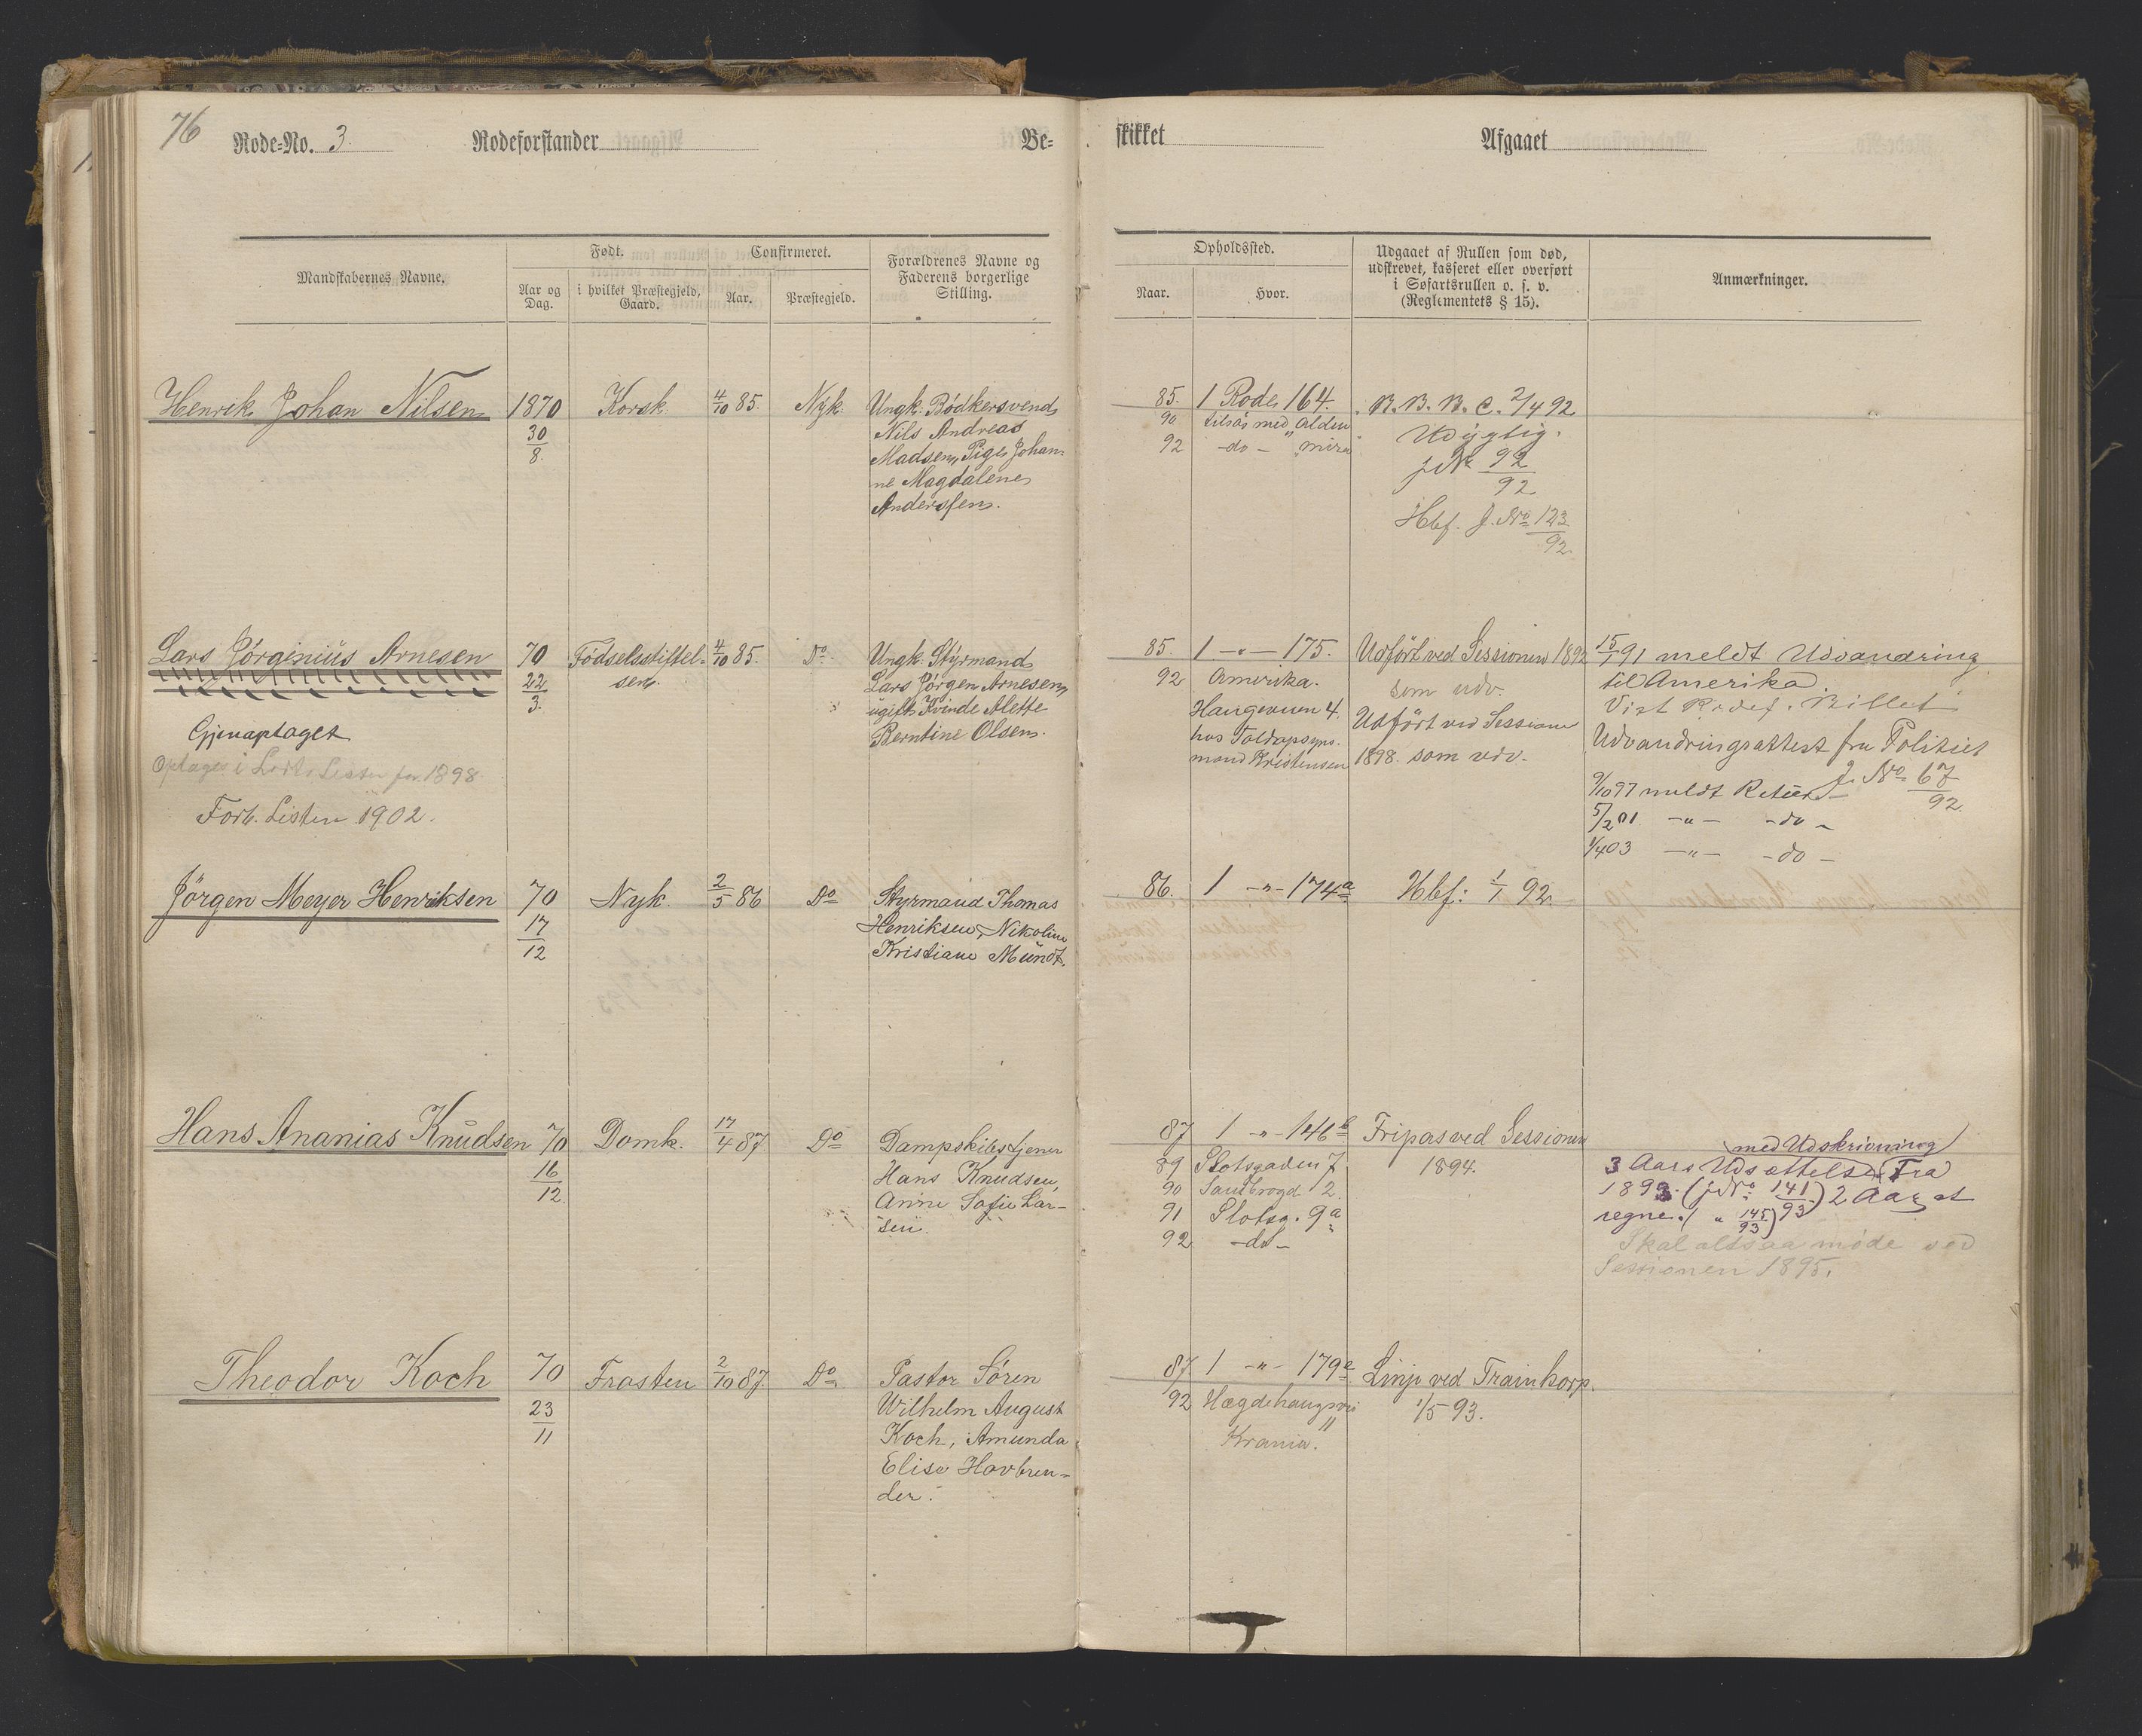 76
Rode-No. 3. Rodeforstander Be-
skikket Afgaaet
Mandskabernes Navne.
Født.
Aar og Dag.
i hvilket Præstegjeld, Gaard.
Confirmeret.
Aar.
Præstegjeld.
Forældrenes Navne og
Faderens borgerlige
Stilling.
Opholdssted.
Naar.
Hvor.
Udgaaet af Rullen som død,
udskrevet, kasseret eller overført
i Søfartsrullen o. s. v.
(Reglementets § 15).
Anmærkninger.
Henrik Johan Nilsen
1870
30/8.
Korsk.
4/10 85.
Nyk.
Ungk. Bödkersvend
Nils Andreas
Madsen, Pige Johan-
ne Magdalene
Anderssen.
85. 1 Rode 164.
90 tilsös med Alden
92 -do- " mira
B. B. B. C. 2/4 92
Udygtig.
jNr 92/92
Hbf. J. No 123/92.
Lars Jörginius Arnesen
Gjenoptaget
Optages i Lodts Listen for 1898
Forb. Listen 1902.
70
22/3.
Födselsstiftel-
sen.
4/10 85.
Do.
Ungk. Styrmand
Lars Jörgen Arnesen,
ugift Kvinde Alette
Berntine Olsen.
85. 1 -"- 175.
92 Amerika.
Haugeveien 4.
hos Toldopsyns-
mand Kristensen
Udfört ved Sessionen 1892
som udv.
Udfört ved Sessionen
1898 som udv.
15/1 91 meldt Udvandring
til Amerika.
Vist Rodef. Billet
Udvandringsattest fra Politiet
J. No 67/92
9/10 97 meldt Retur-
5/2 01 -"- -do-
1/4 03 -"- -do-
Jörgen Meyer Henriksen
70
17/12
Nyk.
2/5 86
Do
Styrmand Thomas
Henriksen, Nikoline
Kristiane Mündt.
86. 1 -"- 174a
Hbf: 1/1 92.
Hans Ananias Knudsen
70
16/12.
Domk.
17/4 87
Do
Dampskibstjener
Hans Knudsen,
Anne Sofie Lar-
sen.
87 1 -"- 146b
89 Slotsgaden 7
90 Sandbrogd 2
91 Slotsg. 9a
92 -do-
Fripas ved Sessionen
1894.
med Udskrivning
3 Aars Udsættelse Fra
1893. (jNo 141/93) 2 Aar at
regne. ( " 145/93)
Skal altsaa möde ved
Sessionen 1895.
Theodor Koch
70
23/11
Frosten
2/10 87.
Do
Pastor Sören
Wilhelm August
Koch, Amunda
Elise Havbren-
der.
87 1 -"- 179e
92 Hægdehaugsvei
11
Krania.
Linje ved Trainkorp.
1/5 93.